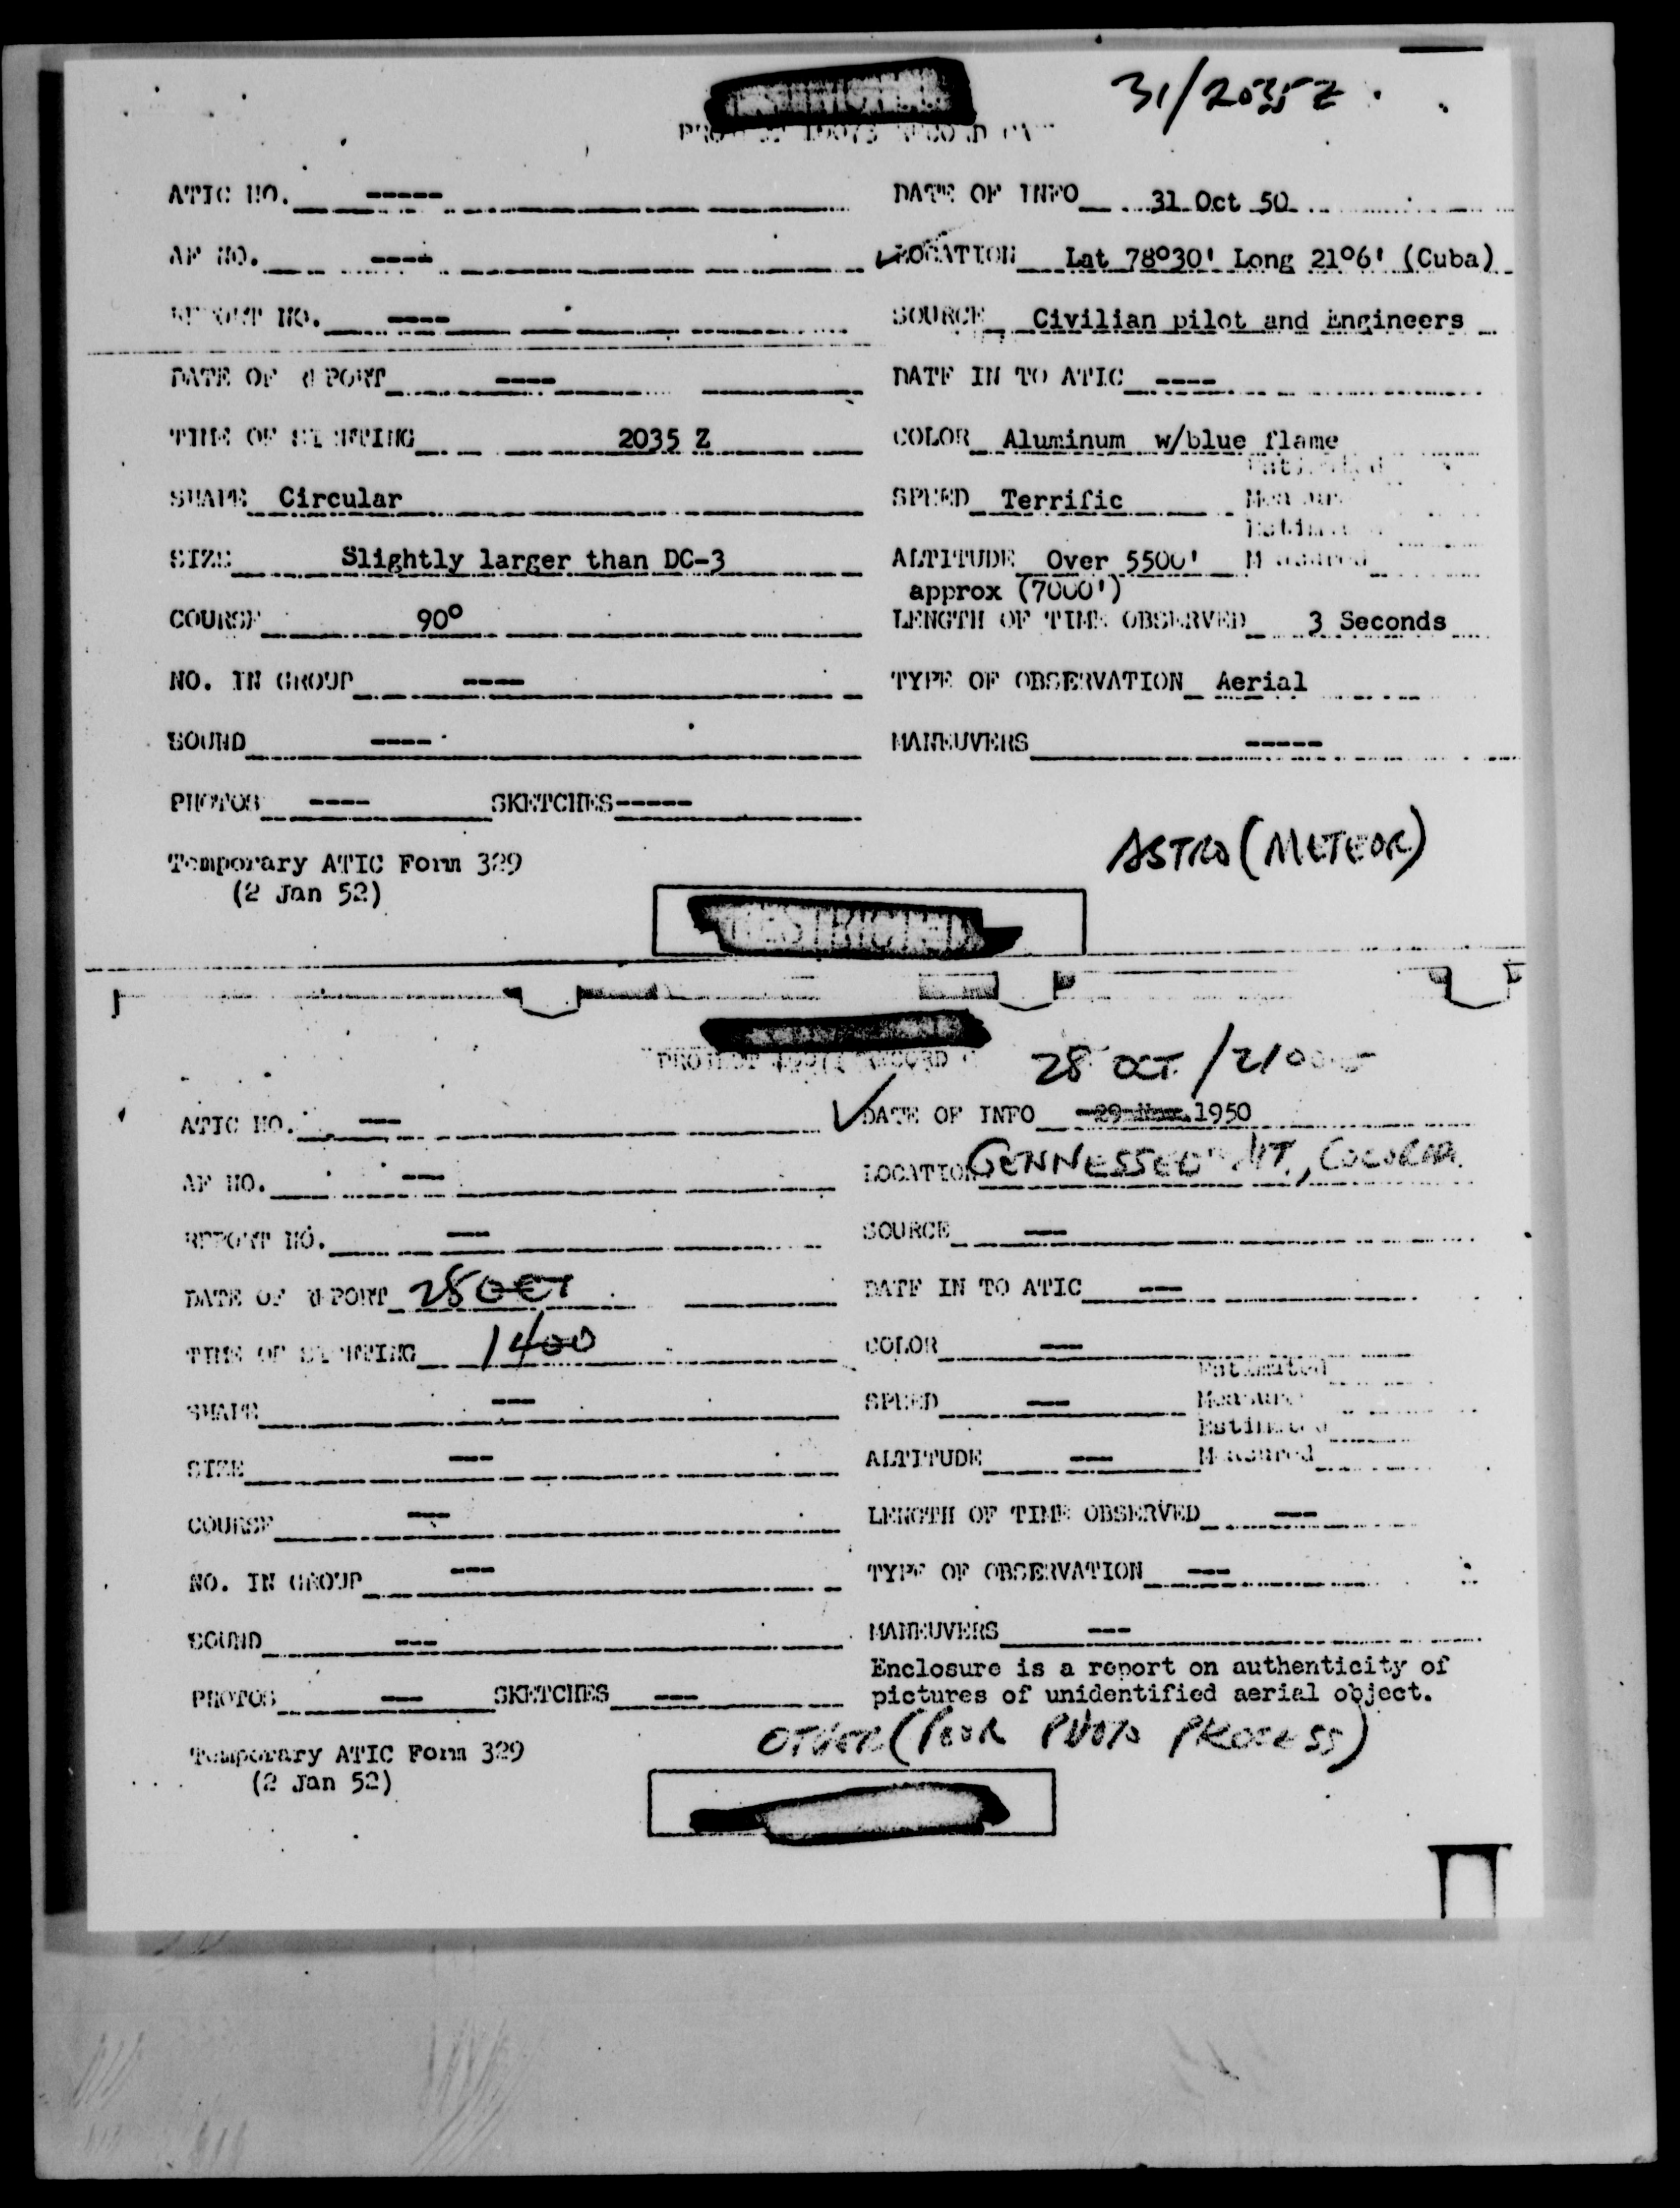 31/2035Z
ATIC NO. ----- DATE OF INFO 31 Oct 50
AF NO. ---- LOCATION Lat 78°30' Long 21°6' (Cuba)
REPORT NO. ---- SOURCE Civilian pilot and Engineers
DATE OF REPORT ---- DATE IN TO ATIC ----
TIME OF SIGHTING 2035 Z COLOR Aluminum w/blue flame
SHAPE Circular SPEED Terrific
SIZE Slightly larger than DC-3 ALTITUDE Over 5500' Measured
approx (7000')
COURSE 90° LENGTH OF TIME OBSERVED 3 Seconds
NO. IN GROUP ---- TYPE OF OBSERVATION Aerial
SOUND ---- MANEUVERS -----
PHOTOS ---- SKETCHES -----
ASTRO (METEOR)
Temporary ATIC Form 329
(2 Jan 52)
PROJECT RECORD
28 OCT /2100
ATIC NO. --- DATE OF INFO 1950
AF NO. --- LOCATION MT,
REPORT NO. --- SOURCE ---
DATE OF REPORT 28 OCT DATE IN TO ATIC ---
TIME OF SIGHTING 1400 COLOR ---
Estimated
SHAPE --- SPEED --- Measured
Estimated
SIZE --- ALTITUDE --- Measured
COURSE --- LENGTH OF TIME OBSERVED ---
NO. IN GROUP --- TYPE OF OBSERVATION ---
SOUND --- MANEUVERS ---
Enclosure is a report on authenticity of
PHOTOS --- SKETCHES --- pictures of unidentified aerial object.
OTHER (POOR PHOTO PROCESS)
Temporary ATIC Form 329
(2 Jan 52)